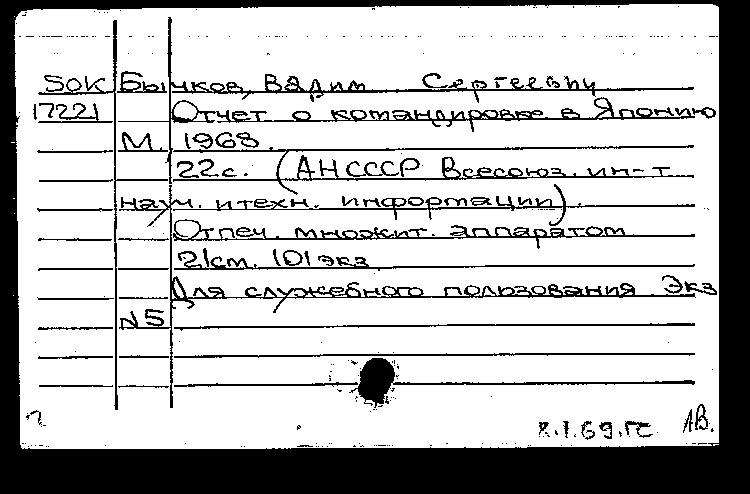 SOK Бычков, Вадим Сергеевич
17221 Отчет о командировке в Японию
М. 1968.
22с. (АН СССР Всесоюз. ин-т
науч. и техн. информации).
Отпеч. множит. аппаратом
21см. 101экз
Для служебного пользования Экз
N5
АВ.